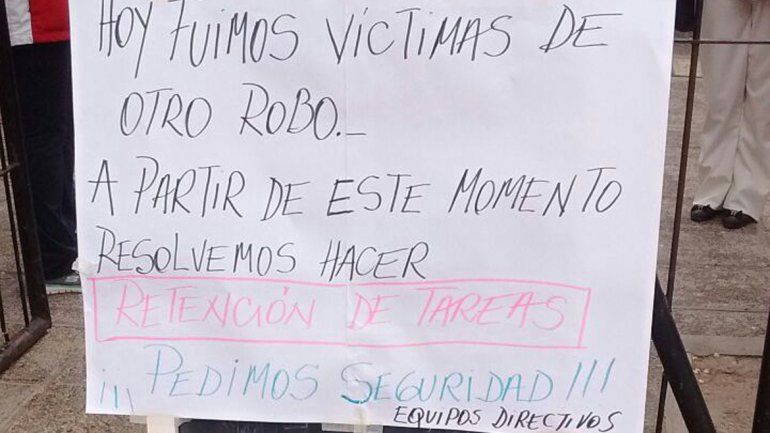 HOY FUIMOS VÍCTIMAS DE
OTRO ROBO._
A PARTIR DE ESTE MOMENTO
RESOLVEMOS HACER
RETENCIÓN DE TAREAS
¡¡¡ PEDIMOS SEGURIDAD!!!
EQUIPOS DIRECTIVOS